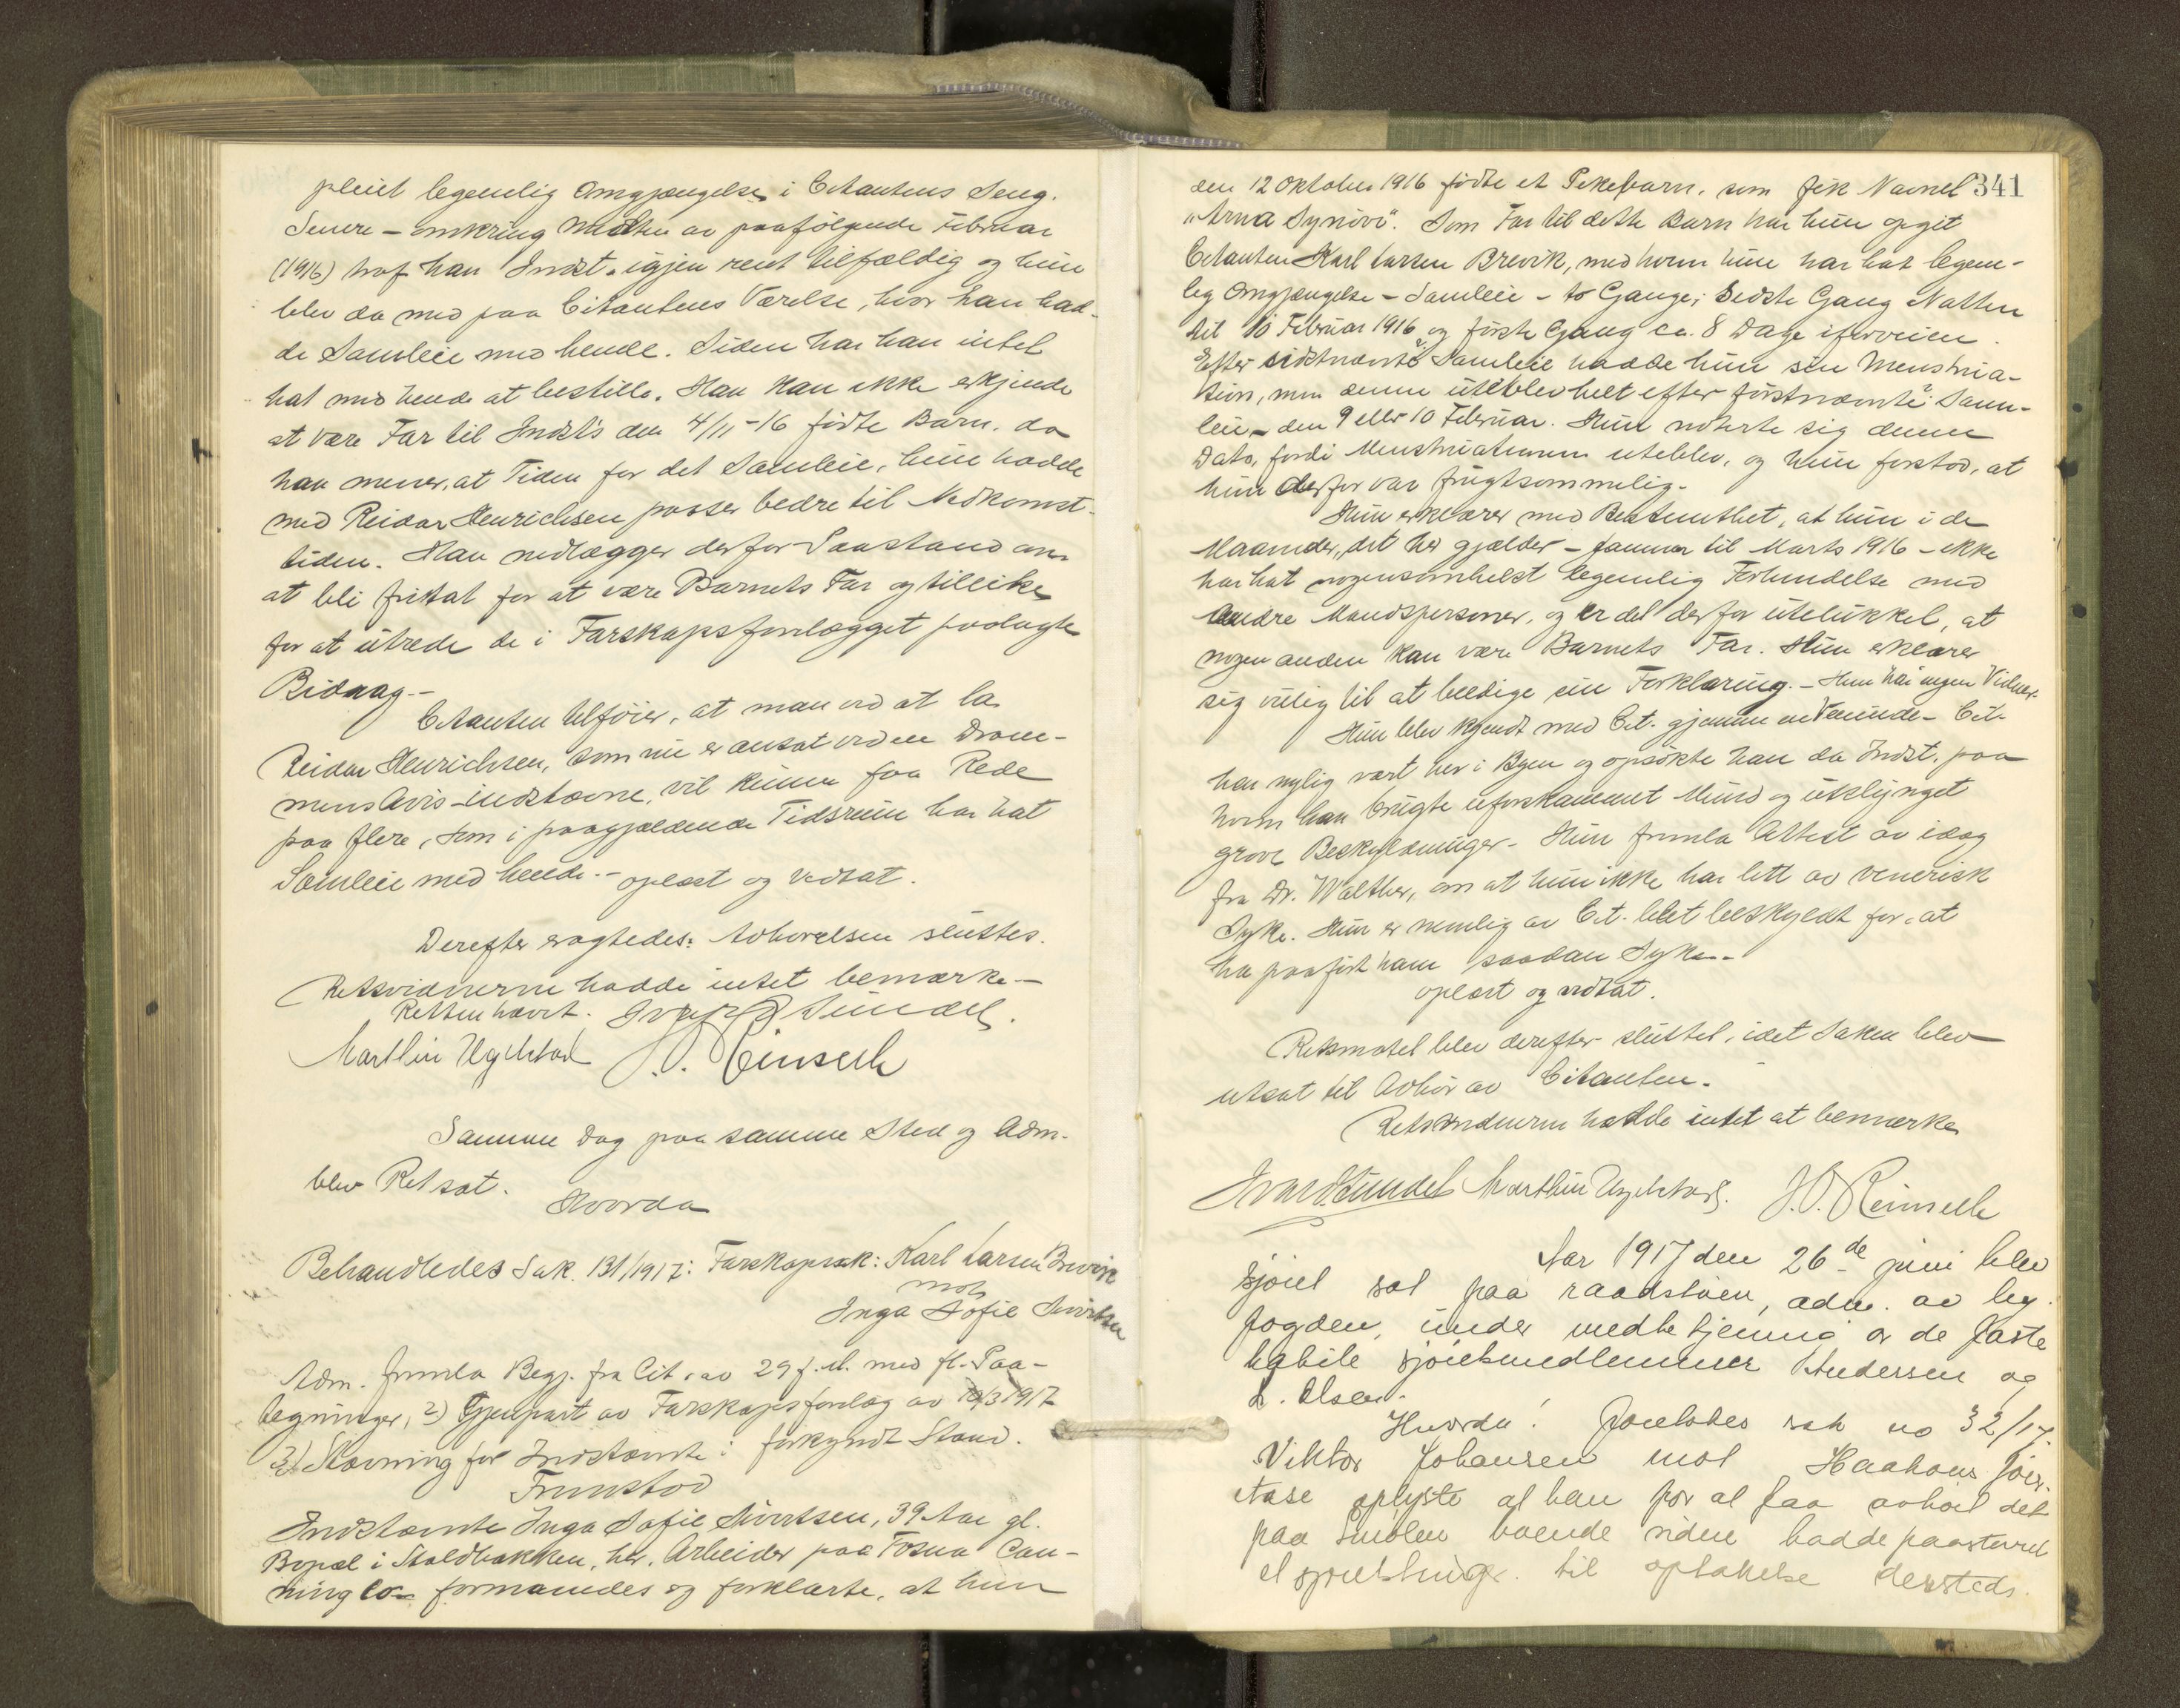 pleiet legemlig Omgjængelse i Citantens Seng.
Senere – omkring Midten av paafølgende Februar
(1916) traf han Indst. igjen rent tilfældig og hun
blev da med paa Citantens Værelse, hvor han had-
de Samleie med hende. Siden har han intet
hat med hende at bestille. Han kan ikke erkjende
at være Far til Indst's den 4/11-16 fødte Barn, da
han mener, at Tiden for det Samleie, hun hadde
med Reidar Henrichsen passer bedre til Nedkomst-
tiden. Han nedlægger derfor Paastand om
at bli fritat for at være Barnets Far og tillike
for at utrede de i Farskapsforelægget paalagte
Bidrag.-
Citanten tilføier, at man ved at la
Reidar Henrichsen, som nu er ansat ved en Dram-
mens Avis indstævne, vil kunne faa Rede
paa flere, som i paagjældende Tidsrum har hat
Samleie med hende.- oplæst og vedtat.
Derefter eragtedes: Avhørelsen sluttes.
Retsvidnerne hadde intet bemærke.-
Retten hævet. Ivar Sundet.
Marthin Ugelstad J.O. Reinsch
Samme Dag paa samme Sted og Adm.
blev Ret sat.
Hvorda
Behandledes Sak. 131/1917: Farskapssak: Karl Larsen Brevik
mot
Inga Sofie Sivertsen
Adm. fremla Begj. fra Cit. av 29 f. M. med fl. Paa-
tegninger, 2) Gjenpart av Farskapsforelæg av 10/3 1917
3) Stævning for Indstævnte i forkyndt Stand.
Fremstod
Indstævnte Inga Sofie Sivertsen, 39 Aar gl.
Bopæl i Stoldbakken, her, Arbeider paa Fosna Can-
ning Co – formanedes og forklarte, at hun
341
den 12 Oktober 1916 fødte et Pikebarn, som fik Navnet
"Arna Synøve". Som Far til dette Barn har hun opgit
Citanten Karl Larsen Brevik, med hvem hun har hat legem-
lig Omgjængelse – Samleie – to Gange; Sidste Gang Natten
til 10 Februar 1916 og første Gang ca. 8 Dage iforveien.
Efter sidstnævnte Samleie hadde hun sin Menstrua-
tion, men denne uteblev helt efter førstnævnte Sam-
leie – den 9 eller 10 Februar. Hun noterte sig denne
Dato, fordi Menstruationen uteblev, og hun forstod, at
hun derfor var frugtsommelig.
Hun erklærer med Bestemthet, at hun i de
Maaneder, det her gjælder – Januar til Marts 1916 – ikke
har hat nogensomhelst legemlig Forbindelse med
andre Mandspersoner, og er det derfor utelukket, at
nogen anden kan være Barnets Far. Hun erklærer
sig villig til at beedige sin Forklaring. – Hun har ingen Vidner.
Hun blev kjendt med Cit. gjennem en Veninde – Cit.
har nylig vært her i Byen og opsøkte han da Indst. paa
hvem han brugte uforskammet Mund og utslynget
grove Beskyldninger. Hun fremla Attest av idag
fra Dr. Walther, om at hun ikke har lidt av venerisk
Syke. Hun er nemlig av Cit. blet beskyldt for, at
ha paaført ham saadan Syke.-
oplæst og vedtat.
Retsmøtet blev derefter sluttet, idet Saken blev
utsat til Avhør av Citanten.
Retsvidnerne hadde intet at bemerke
Ivar Sundet Marthin Ugelstad. J.O. Reinsch
Aar 1917 den 26de juni blev
sjøret sat paa raadstuen, adm. av by
fogden, under medbetjening av de faste
habile sjøretsmedlemmer Andersen og
L. Olsen.
Hvorda! Foretokes sak no 32/17.
Viktor Johansen mot Haakons
oplyste at han for at faa avhørt det
paa Smølen boende vidne hadde paastevnet
et til optakelse dersteds.